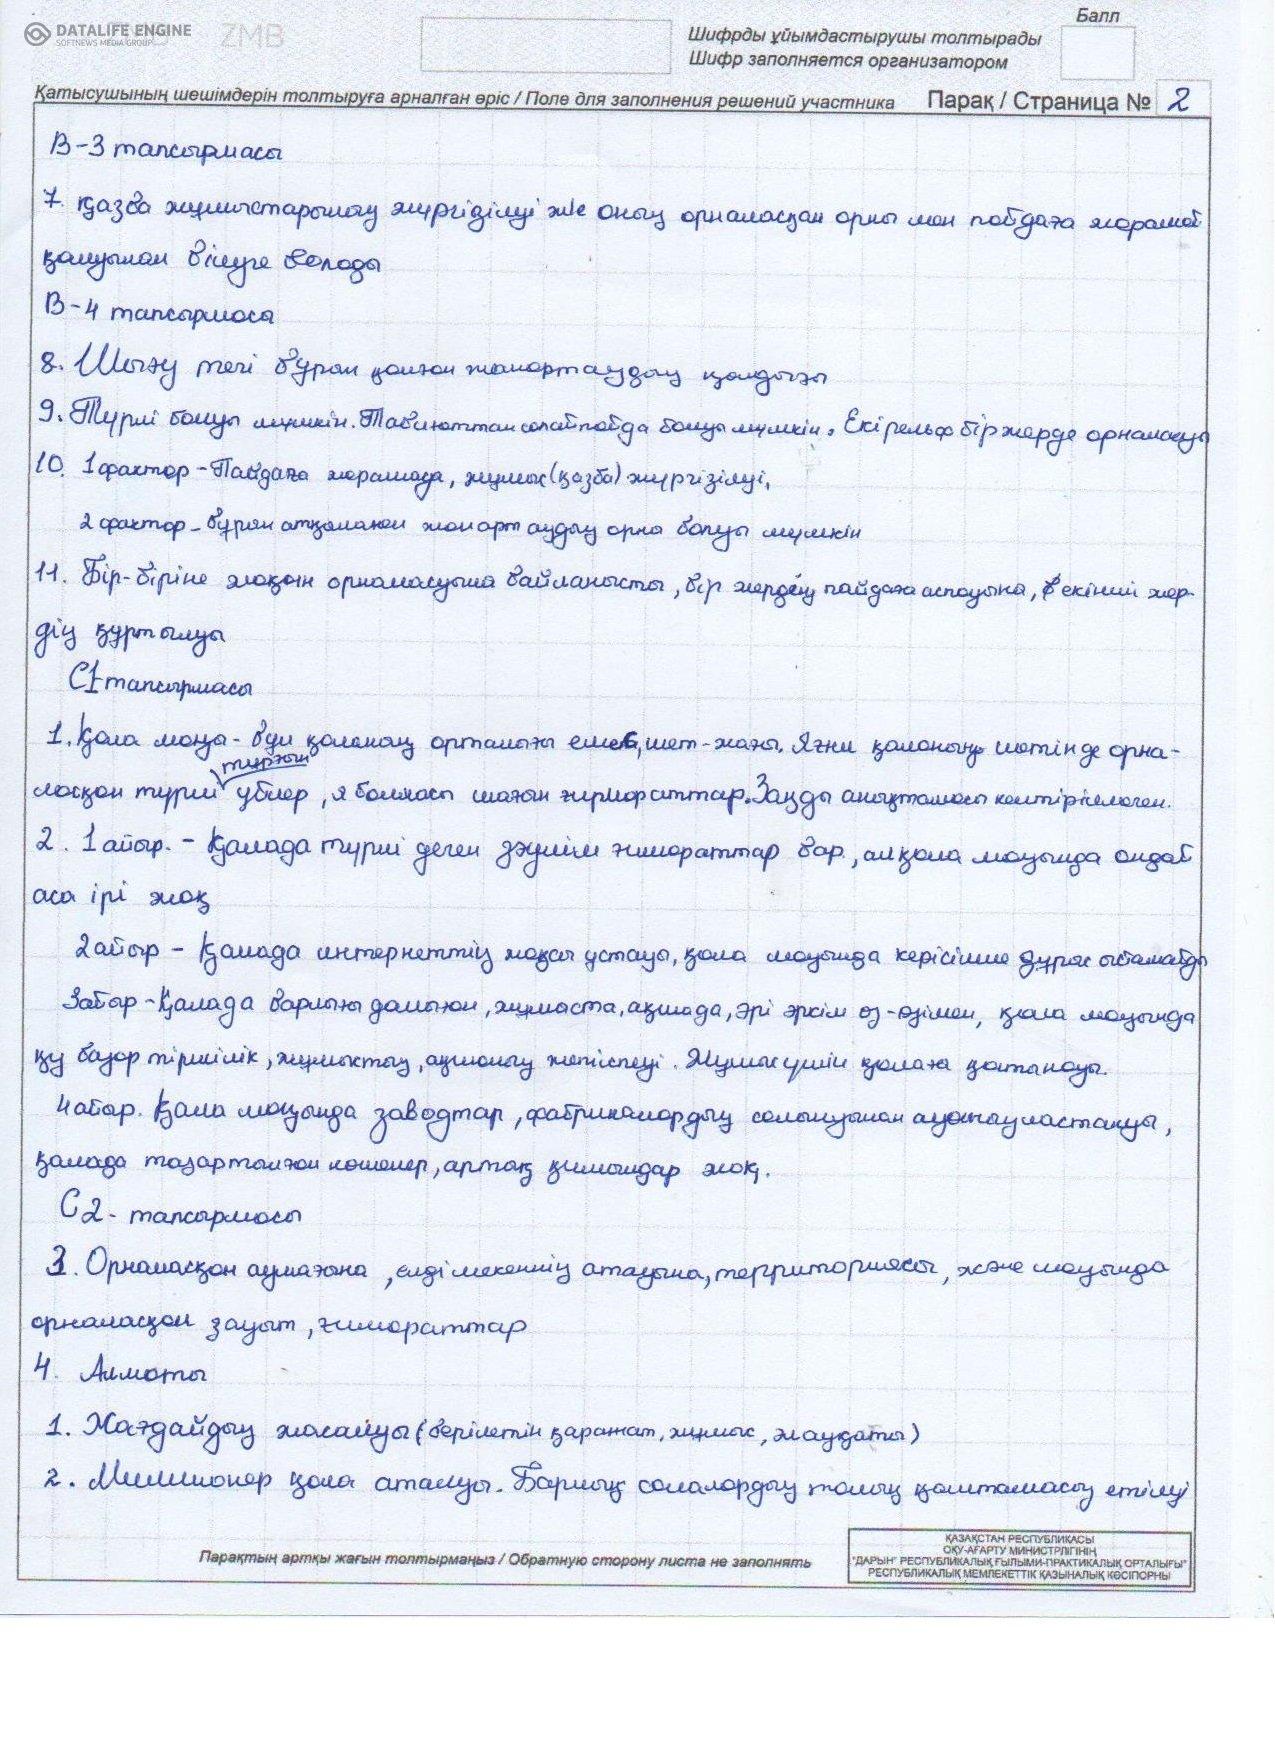 DATALIFE ENGINE
SOFTNEWS MEDIA GROUP
ZMB
Балл
Шифрды ұйымдастырушы толтырады
Шифр заполняется организатором
Қатысушының шешімдерін толтыруға арналған өріс / Поле для заполнения решений участника Парақ / Страница № 2
В-3 тапсырмасы
7. қазба жұмыстарының жүргізілуі және оның орналасқан орны мен пайдаға жарамай
қалуынан білуге болады
В-4 тапсырмасы
8. Шығу тегі бұрын қалған жанартаудың қалдығы
9. Түрлі болуы мүмкін. Табиғаттан солай пайда болуы мүмкін. Екі рельф бір жерде орналасуы
10. 1 фактор - Пайдаға жарамада, жұмыс (қазба) жүргізілуі,
2 фактор - бұрын атқылаған жанартаудың орна болуы мүмкін
11. Бір-біріне жақын орналасуына байланысты, бір жердең пайдаға аспауына, екінші жер-
дің құртылуы
С1 тапсырмасы
1. Қала маңы - бұл қаланың орталығы емес, шет-жағы. Яғни қаланың шетінде орна-
ласқан түрлі тұрғын үйлер, я болмаса шағын ғимораттар. Заңды анықтамасы келтірілмеген.
2. 1 айыр. - Қалада түрлі деген зәулім ғимораттар бар, ал қала маңында ондай
аса ірі жоқ
2 айыр - Қалада интернеттің жақсы ұстауы, қала маңында керісінше дұрыс ұстамайды
3 айыр - Қалада барлығы дамыған, жұмыста, ақшада, әрі әркім өз-өзімен, қала маңында
қу базар тіршілік, жұмыстың, ақшаның жетіспеуі. Жұмыс үшін қалаға қатынауы.
4 айыр. Қала маңында заводтар, фабрикалардың салынуынан ауаның ластануы,
қалада тазартылған көшелер, артық қимылдар жоқ.
С2 - тапсырмасы
3. Орналасқан аумағына, елді мекеннің атауына, территориясы, және маңында
орналасқан зауыт, ғимораттар
4. Алматы
1. Жағдайдың жасалуы (берілетін қаражат, жұмыс, жауқаты)
2. Миллионер қала аталуы. Барлық салалардың толық қамтамасыз етілуі
Парақтың артқы жағын толтырмаңыз / Обратную сторону листа не заполнять
ҚАЗАҚСТАН РЕСПУБЛИКАСЫ
ОҚУ-АҒАРТУ МИНИСТРЛІГІНІҢ
"ДАРЫН" РЕСПУБЛИКАЛЫҚ ҒЫЛЫМИ-ПРАКТИКАЛЫҚ ОРТАЛЫҒЫ"
РЕСПУБЛИКАЛЫҚ МЕМЛЕКЕТТІК ҚАЗЫНАЛЫҚ КӘСІПОРНЫ